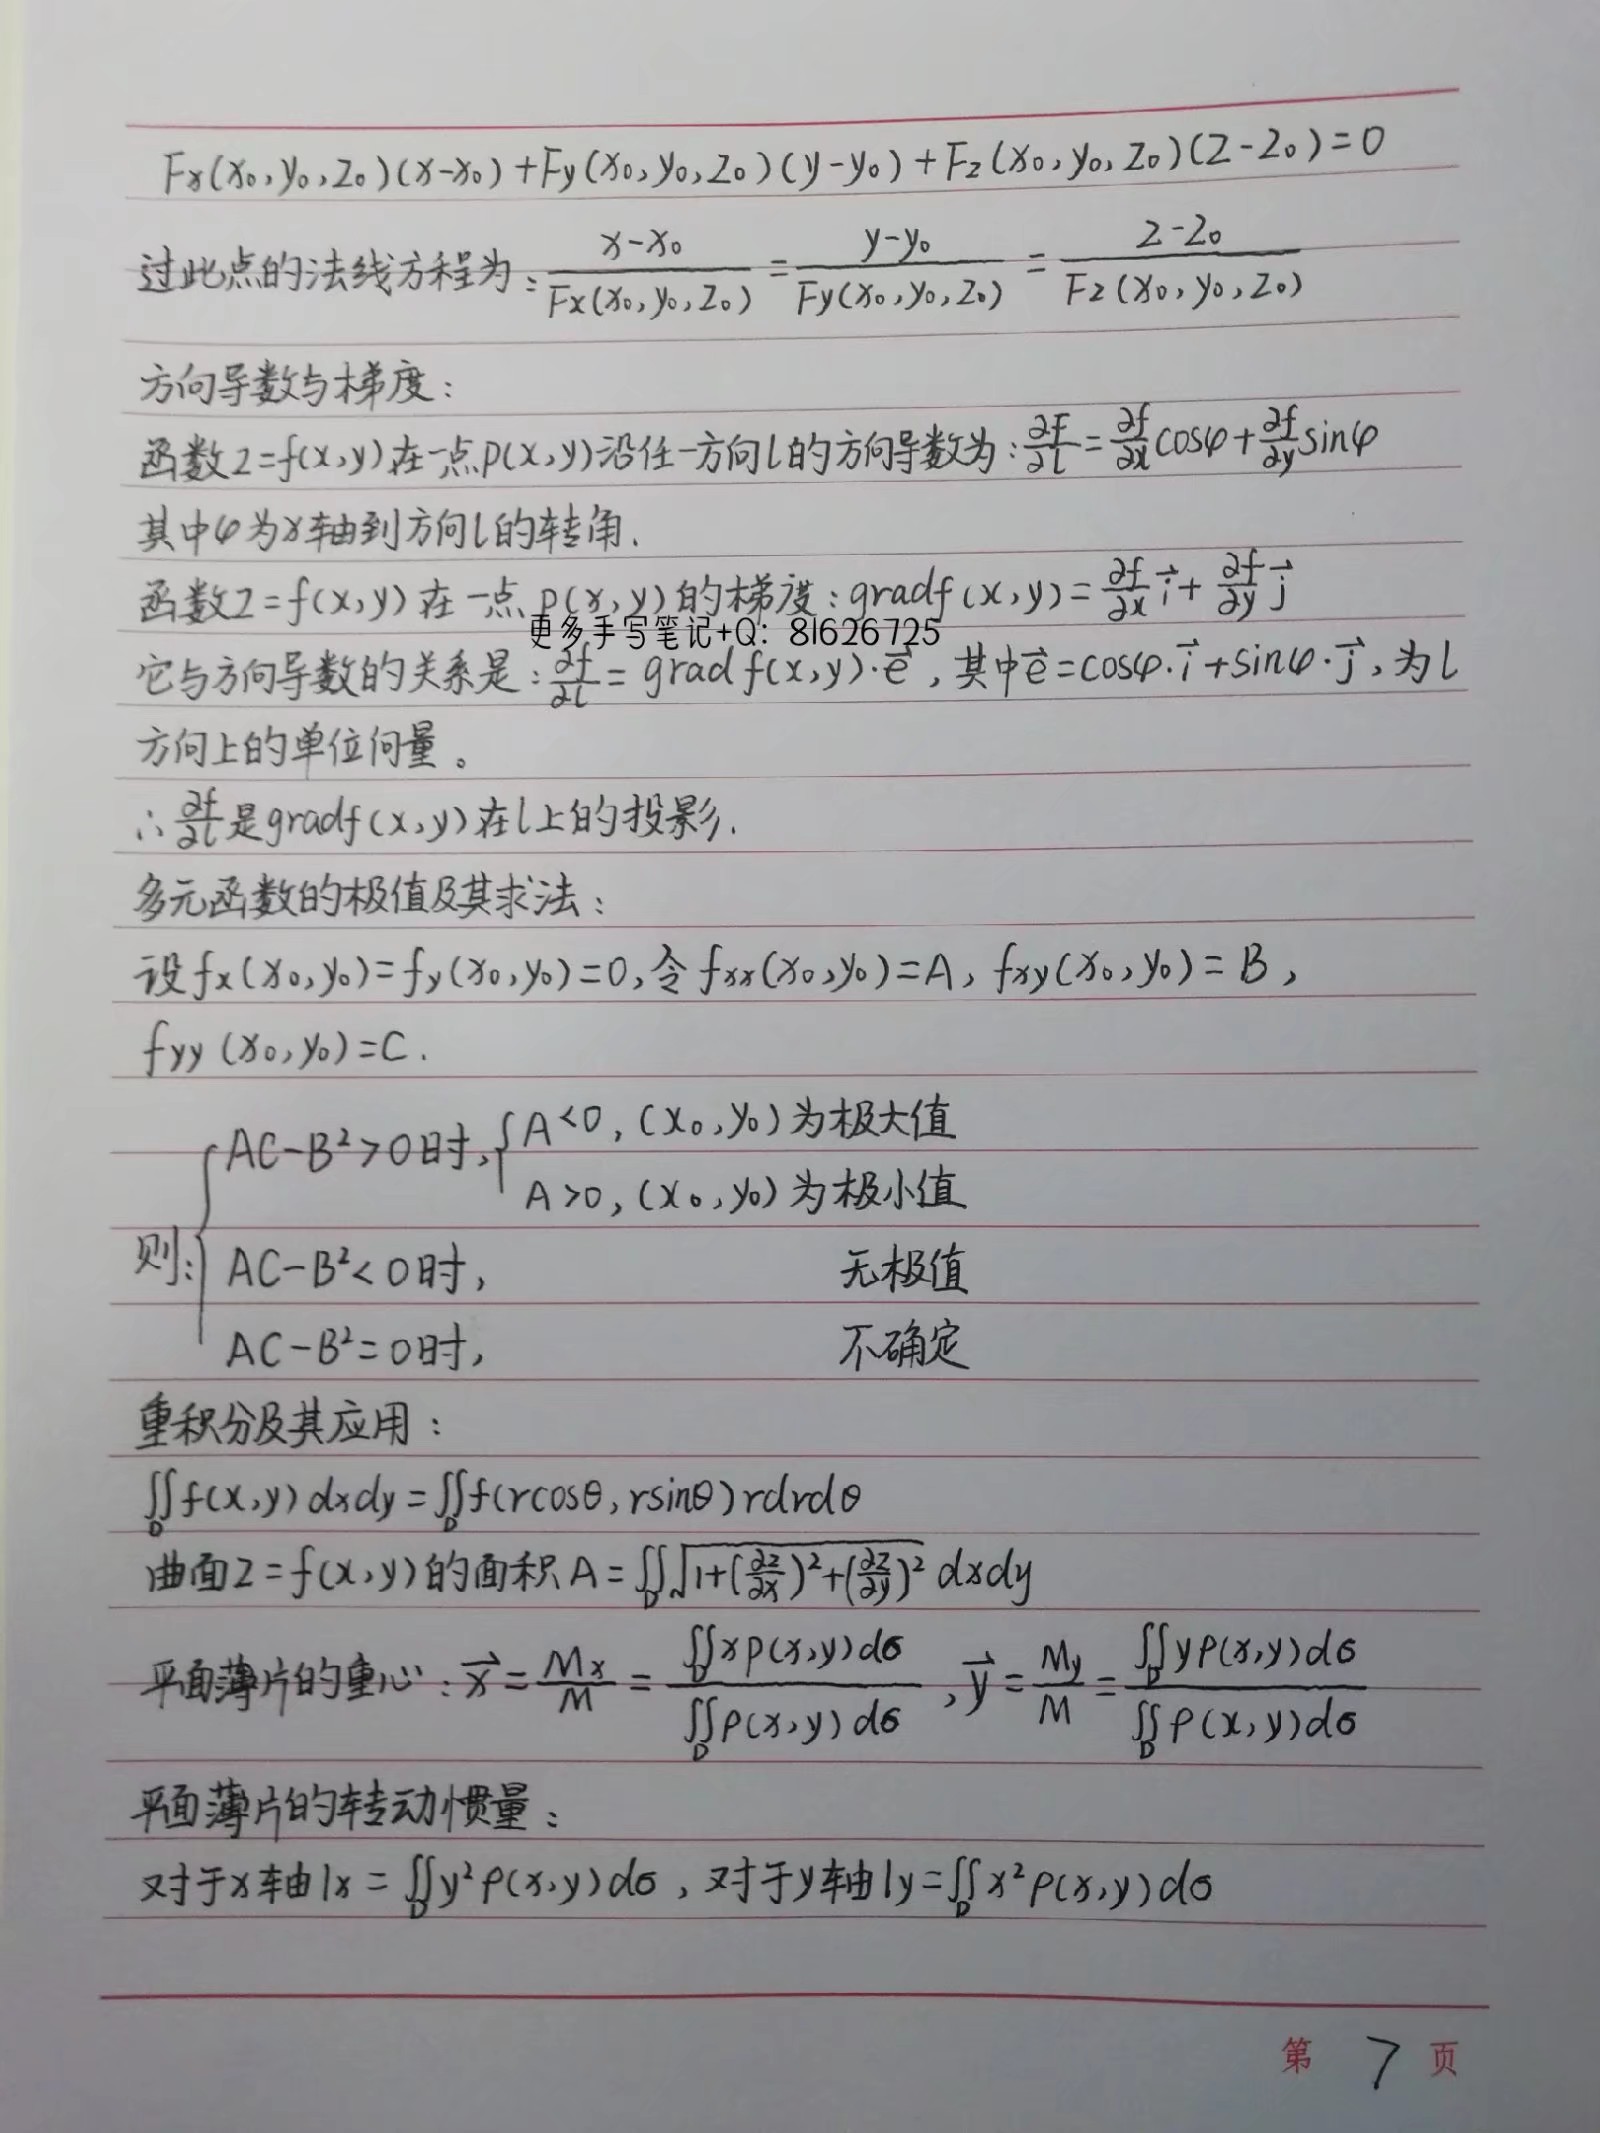 Fx(x₀,y₀,z₀)(x-x₀)+Fy(x₀,y₀,z₀)(y-y₀)+Fz(x₀,y₀,z₀)(z-z₀)=0
过此点的法线方程为：(x-x₀)/Fx(x₀,y₀,z₀) = (y-y₀)/Fy(x₀,y₀,z₀) = (z-z₀)/Fz(x₀,y₀,z₀)
方向导数与梯度：
函数z=f(x,y)在一点p(x,y)沿任一方向l的方向导数为：∂F/∂l=∂f/∂x cosφ+∂f/∂y sinφ
其中φ为x轴到方向l的转角.
函数z=f(x,y)在一点p(x,y)的梯度：gradf(x,y)=∂f/∂x i⃗+∂f/∂y j⃗
更多手写笔记+Q：81626725
它与方向导数的关系是：∂f/∂l=grad f(x,y)·e⃗，其中e⃗=cosφ·i⃗+sinφ·j⃗，为l
方向上的单位向量。
∴∂f/∂l是gradf(x,y)在l上的投影.
多元函数的极值及其求法：
设fx(x₀,y₀)=fy(x₀,y₀)=0,令fxx(x₀,y₀)=A, fxy(x₀,y₀)=B,
fyy(x₀,y₀)=C.
AC-B²>0时, { A<0, (x₀,y₀)为极大值
A>0, (x₀,y₀)为极小值
则：{ AC-B²<0时, 无极值
AC-B²=0时, 不确定
重积分及其应用：
∬_D f(x,y)dxdy=∬_D f(rcosθ,rsinθ)rdrdθ
曲面z=f(x,y)的面积A=∬_D √(1+(∂z/∂x)²+(∂z/∂y)²) dxdy
平面薄片的重心：x⃗=Mx/M=∬_D xρ(x,y)dσ/∬_D ρ(x,y)dσ，y⃗=My/M=∬_D yρ(x,y)dσ/∬_D ρ(x,y)dσ
平面薄片的转动惯量：
对于x轴Ix=∬_D y²ρ(x,y)dσ，对于y轴Iy=∬_D x²ρ(x,y)dσ
第 7 页